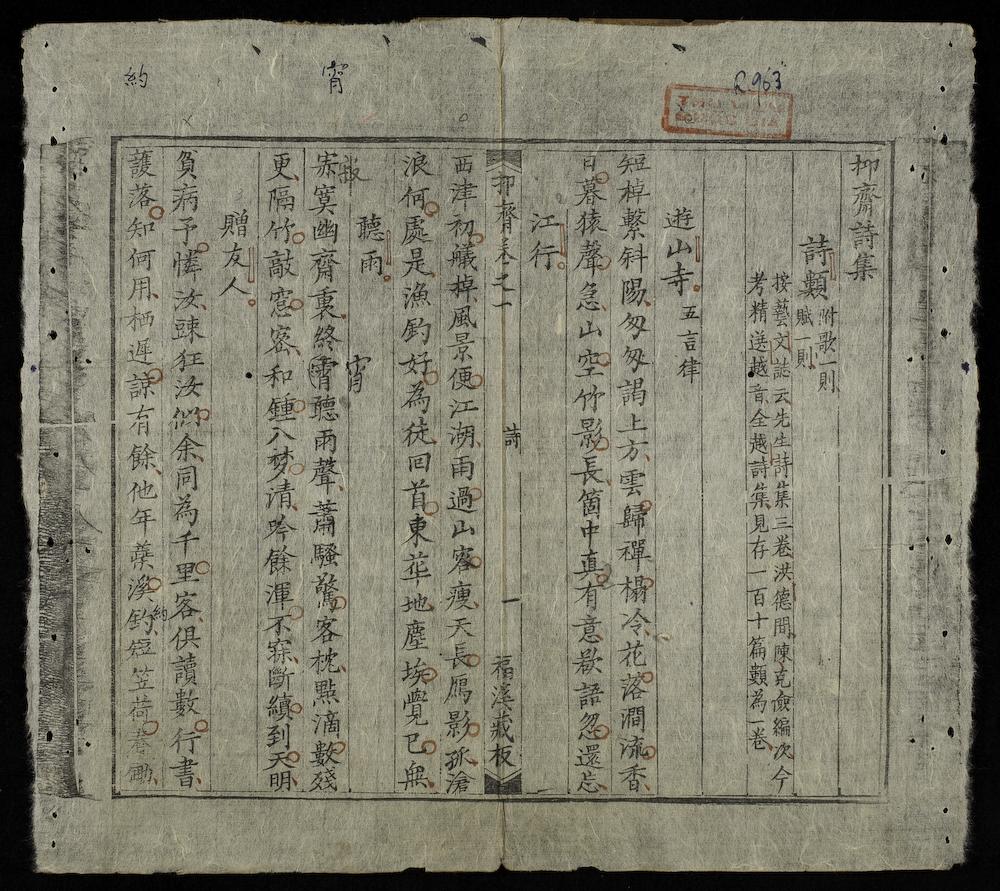 約
宵
R.963
抑齋詩集
詩類
附歌一則
賦一則
按藝文誌云先生詩集三卷洪德間陳克儉編次今
考精選越音全越詩集見存一百十篇類為一卷
遊山寺 五言律
短棹繫斜陽匆匆謁上方雲歸禪榻冷花落澗流香
日暮猿聲急山空竹影長箇中真有意欲語忽還忘
江行
西津初艤棹風景便江湖雨過山容瘦天長鴈影孤滄
浪何處是漁釣好為徒回首東華地塵埃覺已無
抑齋卷之一
詩
一
福溪藏板
聽雨
寂寞幽齋裏終霄聽雨聲蕭騷驚客枕點滴數殘
宵
更隔竹敲窓密和鍾入梦清吟餘渾不寐斷續到天明
贈友人
貧病予憐汝踈狂汝似余同為千里客俱讀數行書
濩落知何用栖遲諒有餘他年蘂溪釣短笠荷春鋤
約